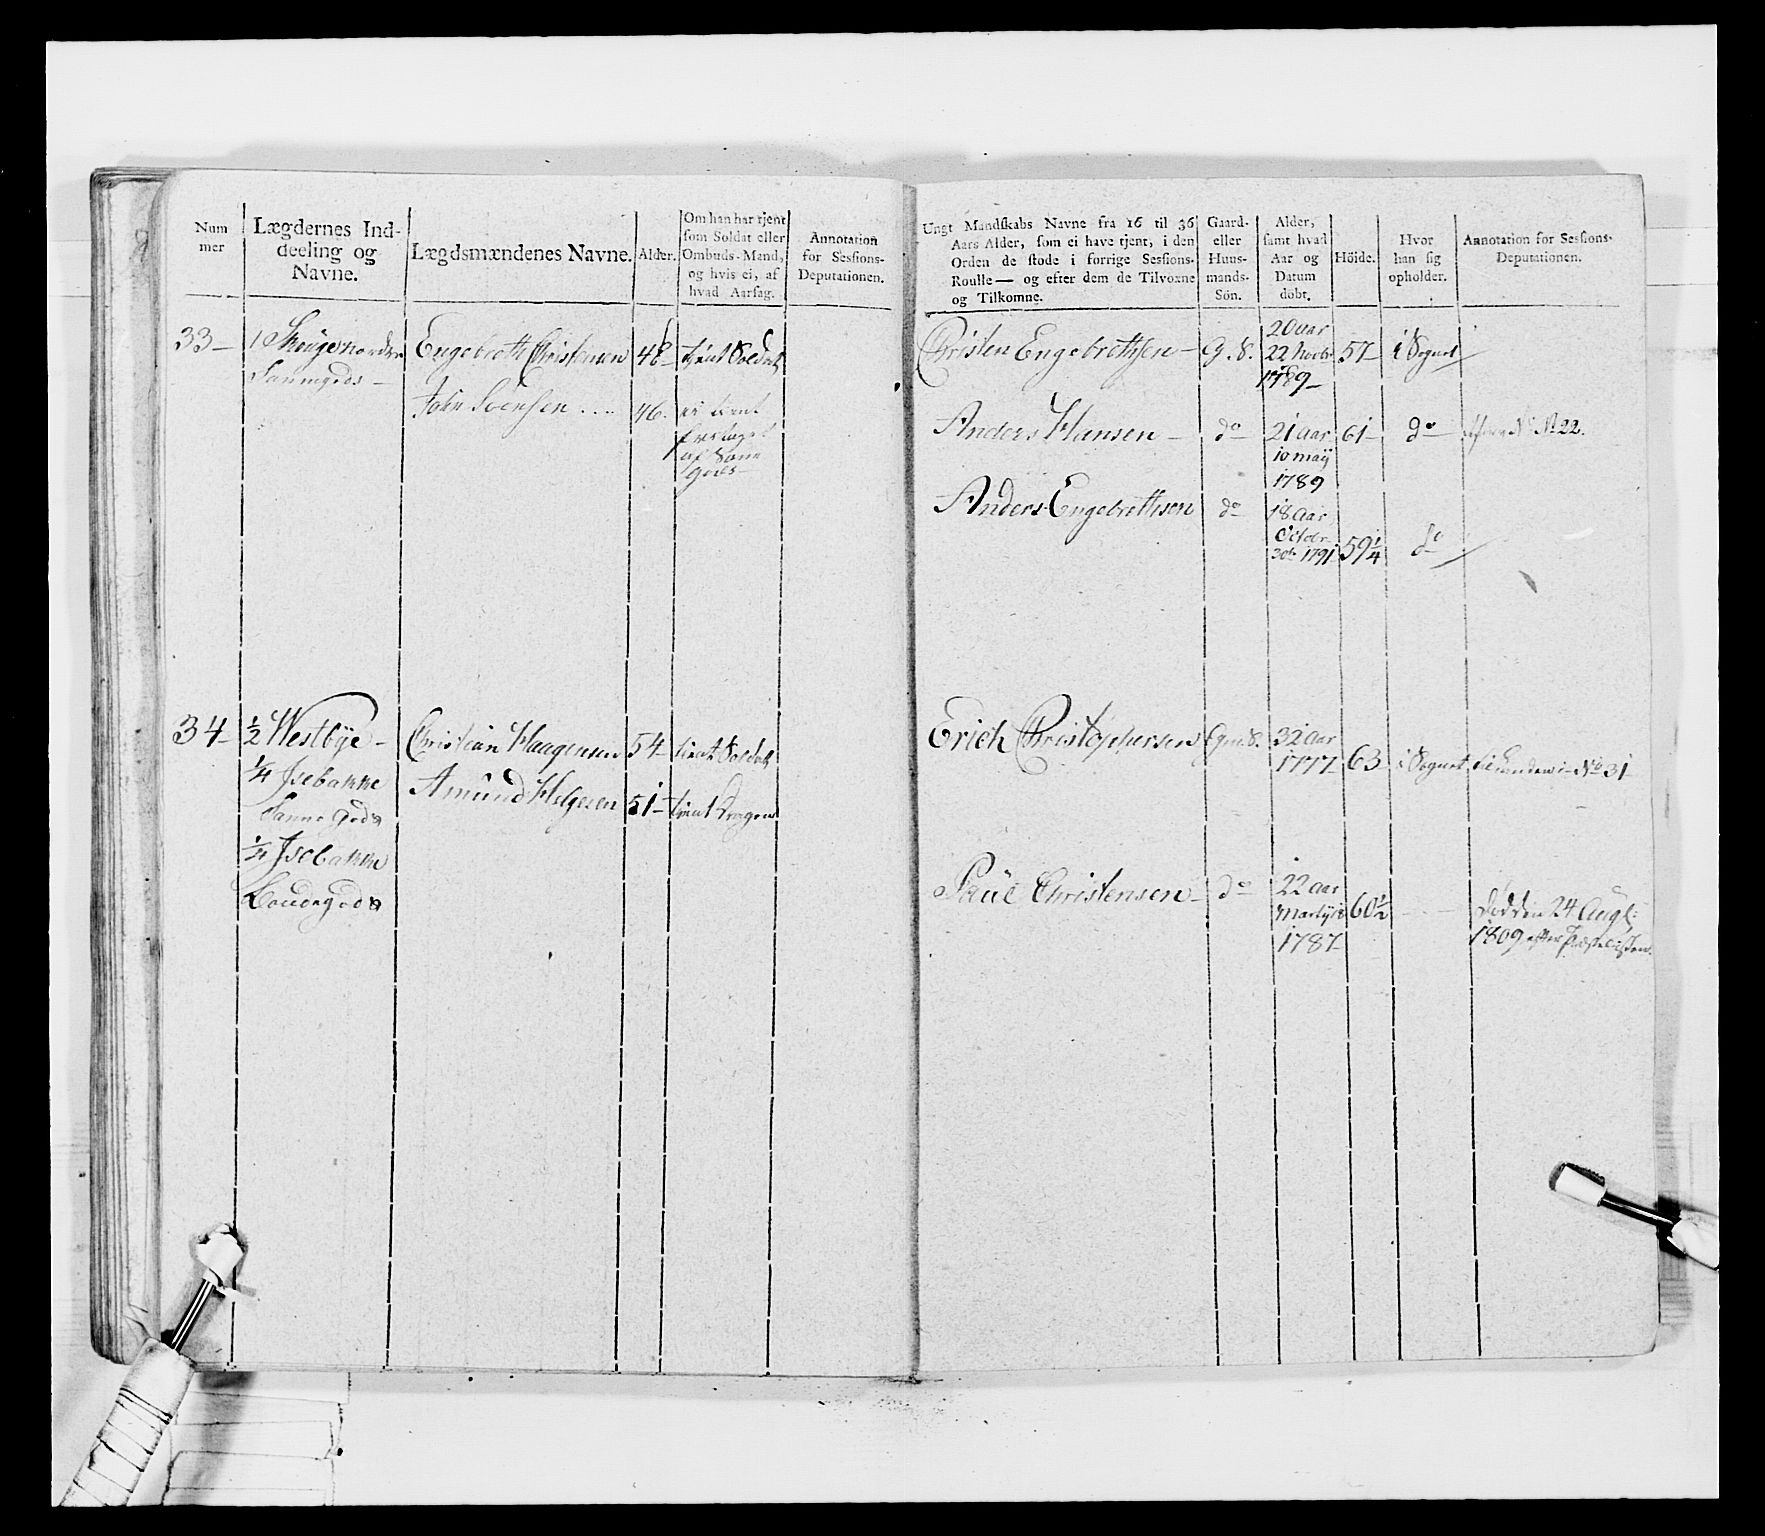 Num
mer
Lægdernes Ind-
deeling og
Navne.
Lægdsmændenes Navne.
Alder.
Om han har tjent
som Soldat eller
Ombuds-Mand,
og hvis ei, af
hvad Aarsag.
Annotation
for Sessions-
Deputationen.
33 1
Engebreth Christensen 48 tient Soldat
John Svensen .... 46. ei tient
34 ½ Westbye Christian Haagensen 54 tient Soldat
¼ Isebakke
Sanne Gods
Amund Helgesen 51 tient Dragon
¼ Isebakke
Gods
Ungt Mandskabs Navne fra 16 til 36
Aars Alder, som ei have tjent, i den
Orden de stode i forrige Sessions-
Roulle — og efter dem de Tilvoxne
og Tilkomne.
Gaard-
eller
Huus-
mands-
Søn.
Alder,
samt hvad
Aar og
Datum
døbt.
Höide.
Hvor
han sig
opholder.
Annotation for Sessions-
Deputationen.
Christen Engebrethsen G. S. 20 aar
22 Novbr
1789 57 i Sognet
Anders Hansen do 21 aar
10 maij
1789 61 do No 22.
Anders Engebrethsen do 18 Aar
Octobr
1791 59¼ do
Erich Christophersen S. 32 aar
1777 63 i Sognet No 31
Paul Christensen do 22 aar
1787 60½ Død den 24 Aug:
1809 efter